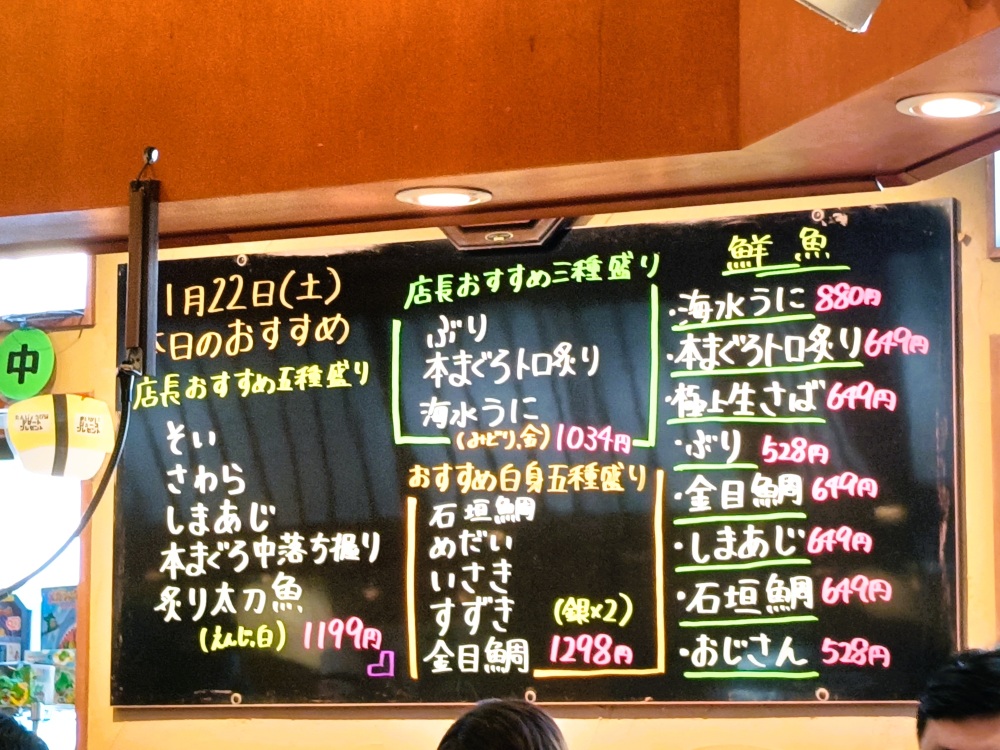 1月22日(土)
本日のおすすめ
店長おすすめ五種盛り
そい
さわら
しまあじ
本まぐろ中落ち握り
炙り太刀魚
(えんじ,白) 1199円
店長おすすめ三種盛り
ぶり
本まぐろトロ炙り
海水うに
(みどり,金) 1034円
おすすめ白身五種盛り
石垣鯛
めだい
いさき
すずき
(銀×2)
金目鯛 1298円
鮮魚
・海水うに 880円
・本まぐろトロ炙り 649円
・極上生さば 649円
・ぶり 528円
・金目鯛 649円
・しまあじ 649円
・石垣鯛 649円
・おじさん 528円
中